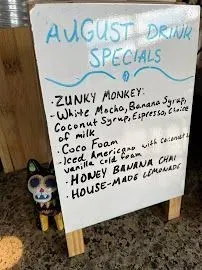 AUGUST DRINK
SPECIALS
· ZUNKY MONKEY:
- White Mocha, Banana Syrup,
Coconut Syrup, Espresso, Choice
of milk.
· Coco Foam
- Iced Americano with Coconut &
vanilla cold foam
· HONEY BANANA CHAI
· HOUSE-MADE LEMONADE